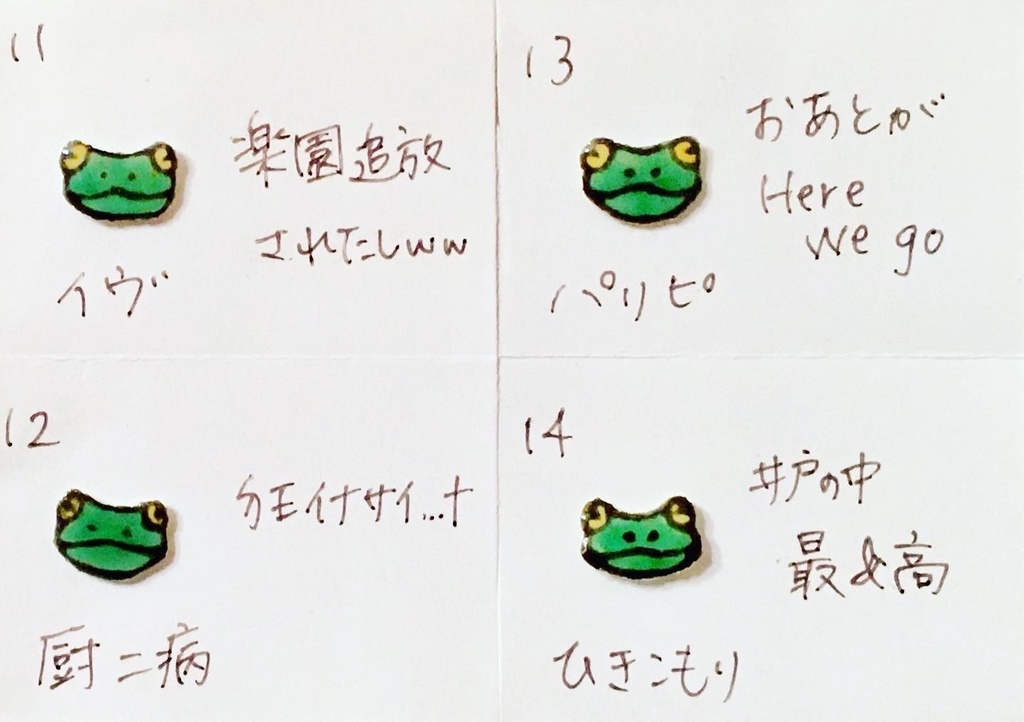 11
楽園追放
されたしww
イヴ
12
厨二病
13
おあとが
Here
we go
パリピ
14
井戸の中
最&高
ひきこもり